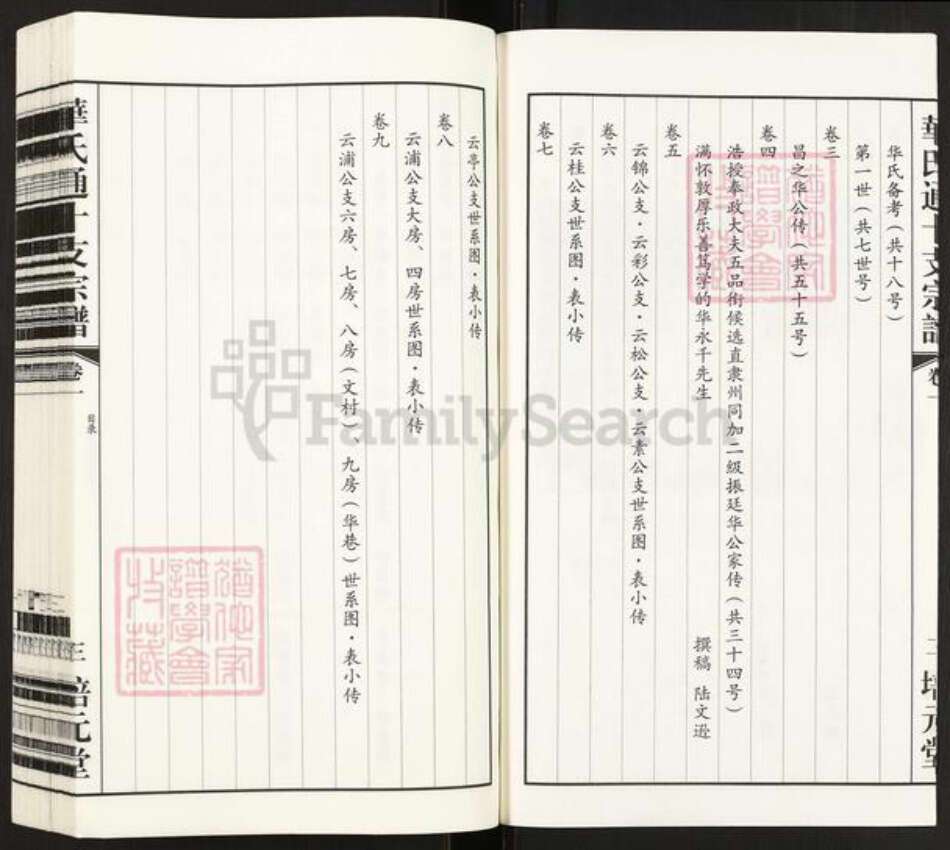 華氏通十支宗譜
卷一
二
培元堂
华氏备考（共十八号）
第一世（共七世号）
卷三
昌之华公传（共五十五号）
卷四
浩授奉政大夫五品衔候选直隶州同加二级振廷华公家传（共三十四号）
满怀敦厚乐善笃学的华永千先生 撰稿 陆文逊
卷五
云锦公支·云彩公支·云松公支·云素公支世系图·表小传
卷六
云桂公支世系图·表小传
卷七
云亭公支世系图·表小传
卷八
云浦公支大房、四房世系图·表小传
卷九
云浦公支六房、七房、八房（文村）、九房（华巷）世系图·表小传
華氏通十支宗譜
卷一
目录
三
培元堂
猶他家譜學會收藏
猶他家譜學會收藏
FamilySearch